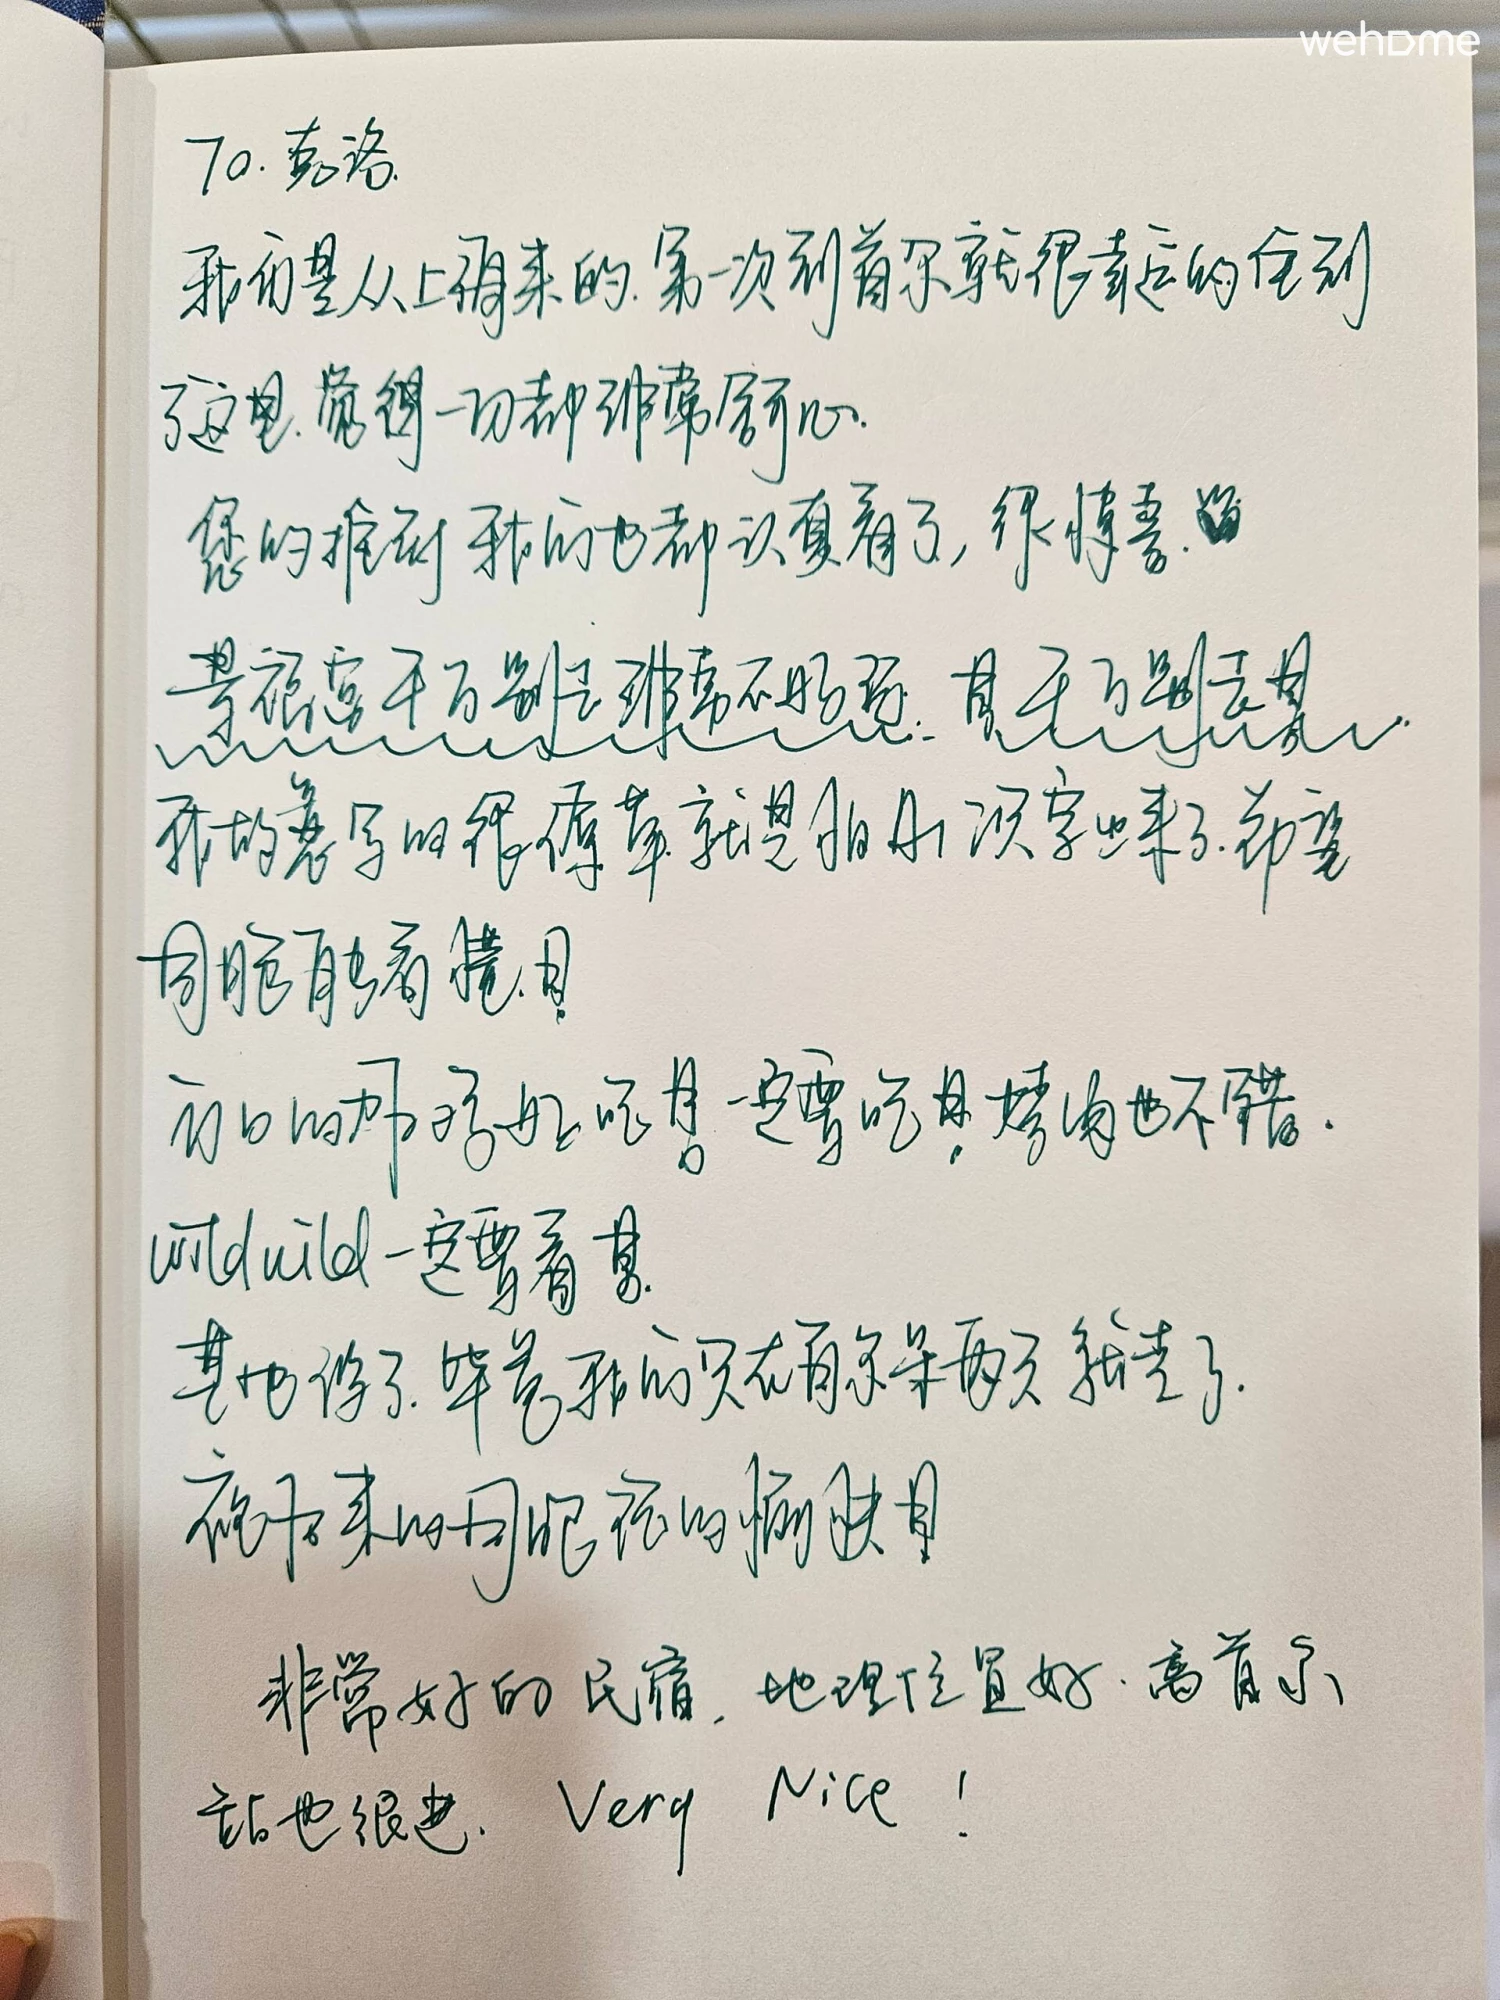 wehome
To. 克洛
我们是从上海来的. 第一次到首尔就很幸运的住到
了这里. 觉得一切都非常舒心.
您的推荐我们也都认真看了, 很惊喜.
千万别去 非常不好 千万别去
我故意写的很潦草 就是怕 认字出来了. 希望
同胞能看懂.
门口的 子好吃 一定要吃 烤肉也不错.
wildwild一定要看
其他没了. 毕竟我们只在首尔呆两天就走了.
祝后来的同胞 的愉快
非常好的民宿, 地理位置好. 离首尔
站也很近. Very Nice!